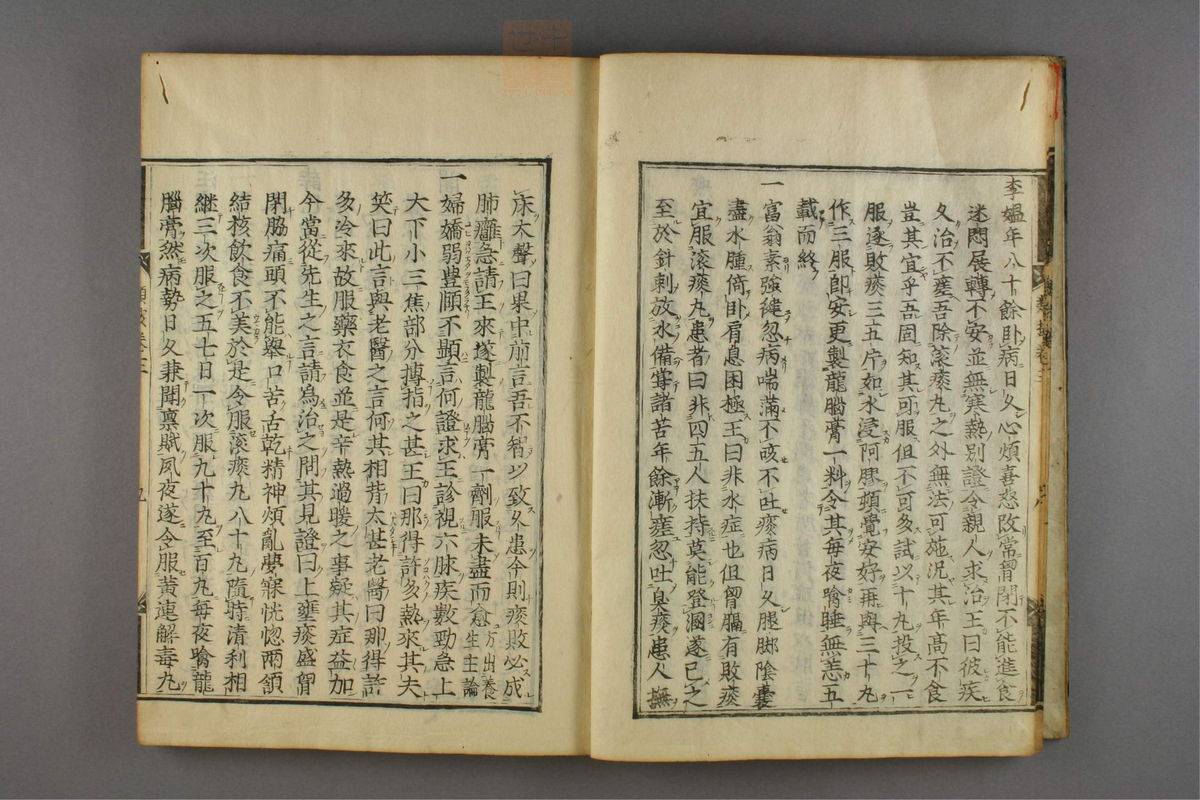 李媼年八十餘卧病日久心煩喜怒改常胷閉不能進食
迷悶展轉不安並無寒熱別證令親人求治王曰彼疾
久治不瘥吾除滾痰丸之外無法可施況其年高不食
豈其宜乎吾固知其可服但不可多試以十丸投之一
服逐敗痰三五片如水浸阿膠頓覺安好再與三十丸
作三服即安更製龍腦膏一料令其每夜噙睡無恙五
載而終
一富翁素強健忽病喘滿不咳不吐痰病日久腿脚陰囊
盡水腫倚卧肩息困極王曰非水症也但胷膈有敗痰
宜服滾痰丸患者曰非四五人扶持莫能登溷遂已之
至於針刺放水備嘗諸苦年餘漸瘥忽吐臭痰患人撫
床大聲曰果中前言吾不智以致久患今則痰敗必成
肺癰急請王來遂製龍腦膏一劑服未盡而愈方出養生主論
一婦嬌弱豊順不顯言何證求王診視六脉疾數勁急上
大下小三焦部分搏指之甚王曰那得許多熱來其夫
笑曰此言與老醫之言何其相背太甚老醫曰那得許
多冷來故服藥衣食並是辛熱過暖之事疑其症益加
今當從先生之言請為治之問其見證曰上壅痰盛胷
閉脇痛頭不能舉口苦舌乾精神煩亂夢寐恍惚兩頷
結核飲食不美於是令服滾痰丸八十丸隨時清利相
繼三次服之五七日一次服九十丸至百丸每夜噙龍
腦膏然病勢日久兼聞禀賦夙夜遂令服黃連解毒丸